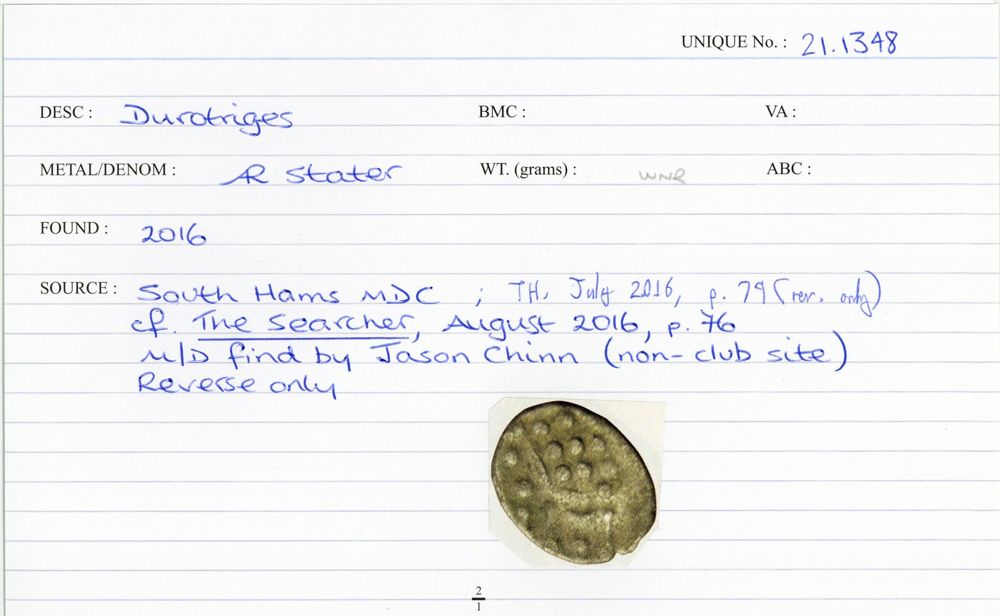 UNIQUE No. : 21.1348
DESC : Durotriges BMC : VA :
METAL/DENOM : AR stater WT. (grams) : WNR ABC :
FOUND : 2016
SOURCE : South Hams MDC ; TH, July 2016, p. 79 (rev. only)
cf. The Searcher, August 2016, p. 76
M/D find by Jason Chinn (non-club site)
Reverse only
2
1